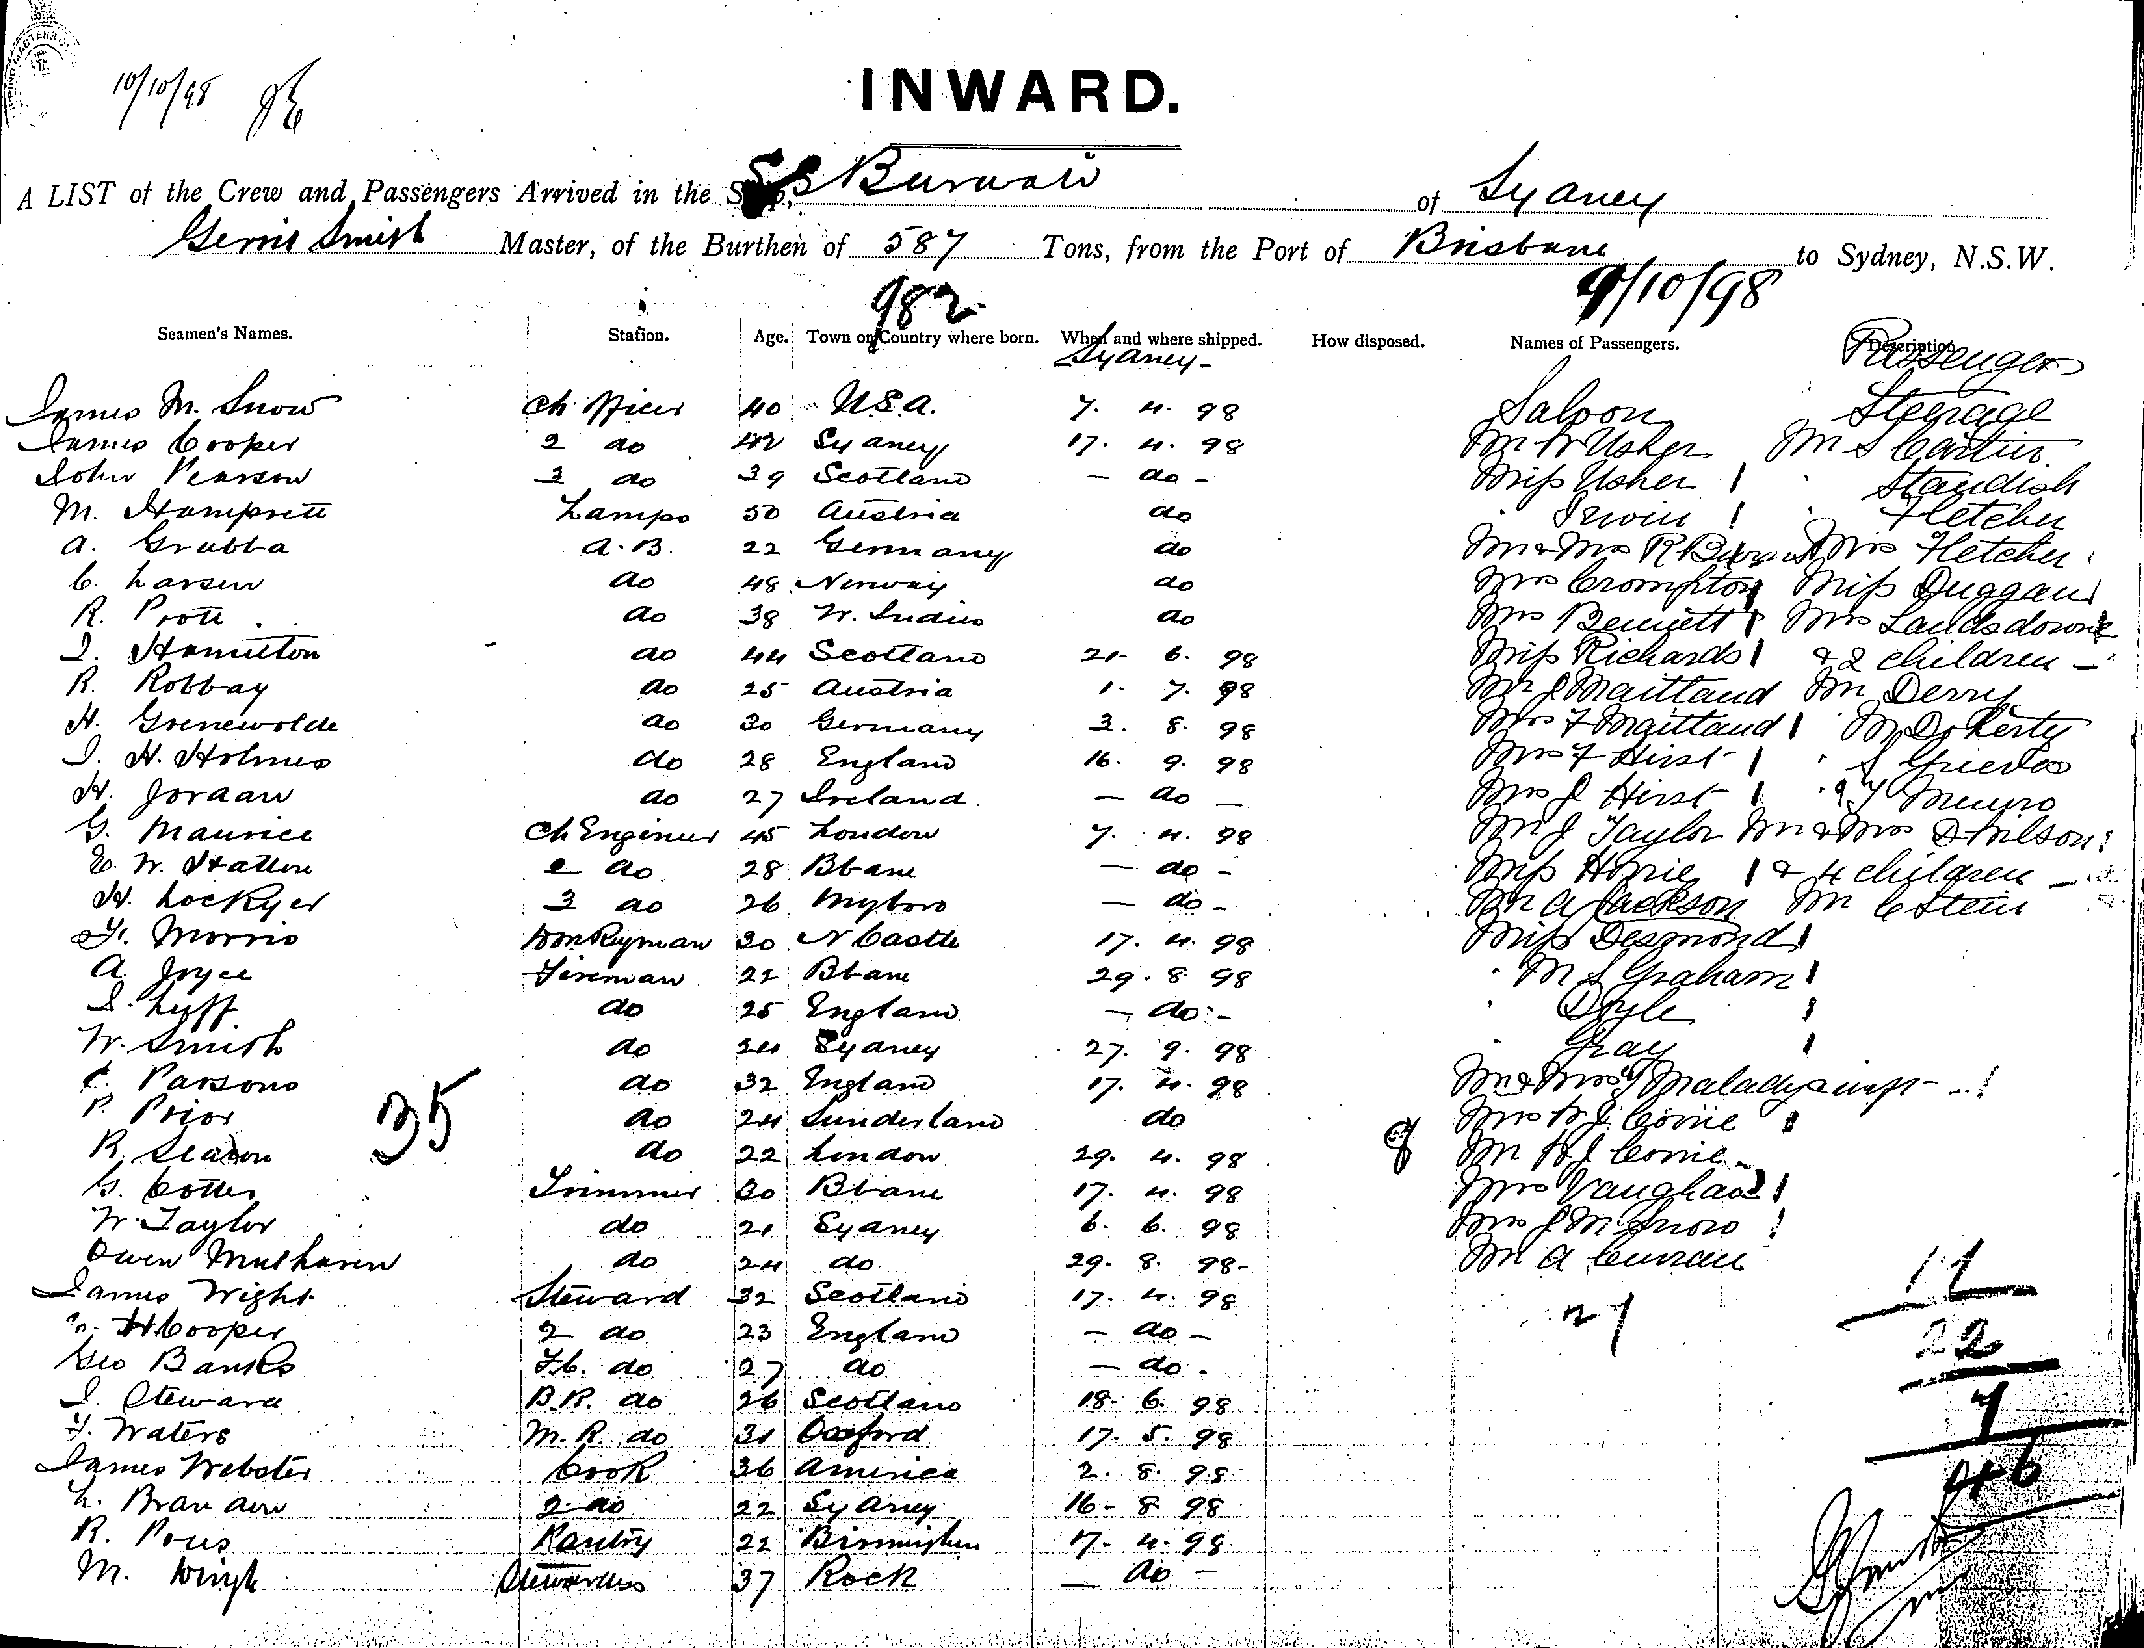 10/10/98
INWARD.
A LIST of the Crew and Passengers Arrived in the SS Burwah of Sydney
Smith Master, of the Burthen of 587 Tons, from the Port of Brisbane to Sydney, N.S.W.
982 9/10/98
Seamen's Names. Station. Age. Town or Country where born. When and where shipped. How disposed. Names of Passengers. Description
Sydney - Passengers
James M. Snow Ch Officer 40 U.S.A. 7. 4. 98 Saloon Steerage
James Cooper 2 do 42 Sydney 17. 4. 98 Mr W Usher Mr S Carter
John Pearson 3 do 39 Scotland - do - Miss Usher Standish
M. Lamps 50 Austria do Irwin Fletcher
A. Grubba A.B. 22 Germany do Mr & Mrs R Mrs Fletcher
C. Larsen do 48 Norway do Mrs Crompton Miss Duggan
R. do 38 W. Indies do Mrs Bennett Mrs Landsdowne
J. Hamilton do 44 Scotland 21 6. 98 Miss Richards & 2 children -
R. Robbay do 25 Austria 1. 7. 98 Mr J Maitland Mr Derry
H. Grenewolde do 30 Germany 3. 8. 98 Mrs F Maitland Mr Doherty
J. H. Holmes do 28 England 16. 9. 98 Mrs F Hirst S
H. Jordan do 27 Ireland - do - Mrs J Hirst Munro
G. Maurice Ch Engineer 45 London 7. 4. 98 Mr J Taylor Mr & Mrs D Wilson
E. W. Hatton 2 do 28 Bbane - do - Miss & 4 children -
H. Lockyer 3 do 26 Myboro - do - Mr A Jackson Mr C Stein
Morris Donkeyman 30 N Castle 17. 4. 98 Miss Desmond
A Joyce Fireman 22 Bbane 29. 8 98 Mr S Graham
S. Lyff do 25 England - do - Doyle
W. Smith do 24 Sydney 27. 9. 98 Gray
C. Parsons do 32 England 17. 4. 98 Mr & Mrs
P. Prior do 24 Sunderland do Mrs W J Corrie
R. do 22 London 29. 4. 98 Mr W J Corrie
35 8
G. Cotter Trimmer 30 Bbane 17. 4. 98 Mrs Vaughan
W. Taylor do 21 Sydney 6. 6. 98 Mrs J M Snow
Owen Mulharen do 24 do 29. 8. 98 - Mr A Curran
James Wright Steward 32 Scotland 17. 4. 98
H Cooper 2 do 23 England - do -
Geo Banks F.C. do 27 do - do -
J. Steward B.R. do 26 Scotland 18. 6. 98
F. Waters M.R. do 31 Oxford 17. 5. 98
James Webster Cook 36 America 2. 8. 98
L. Branden 2 do 22 Sydney 16 - 8 98
R. Pantry 22 Birmingham 17. 4. 98
M. Stewardess 37 Rock - do -
17
22
7
46